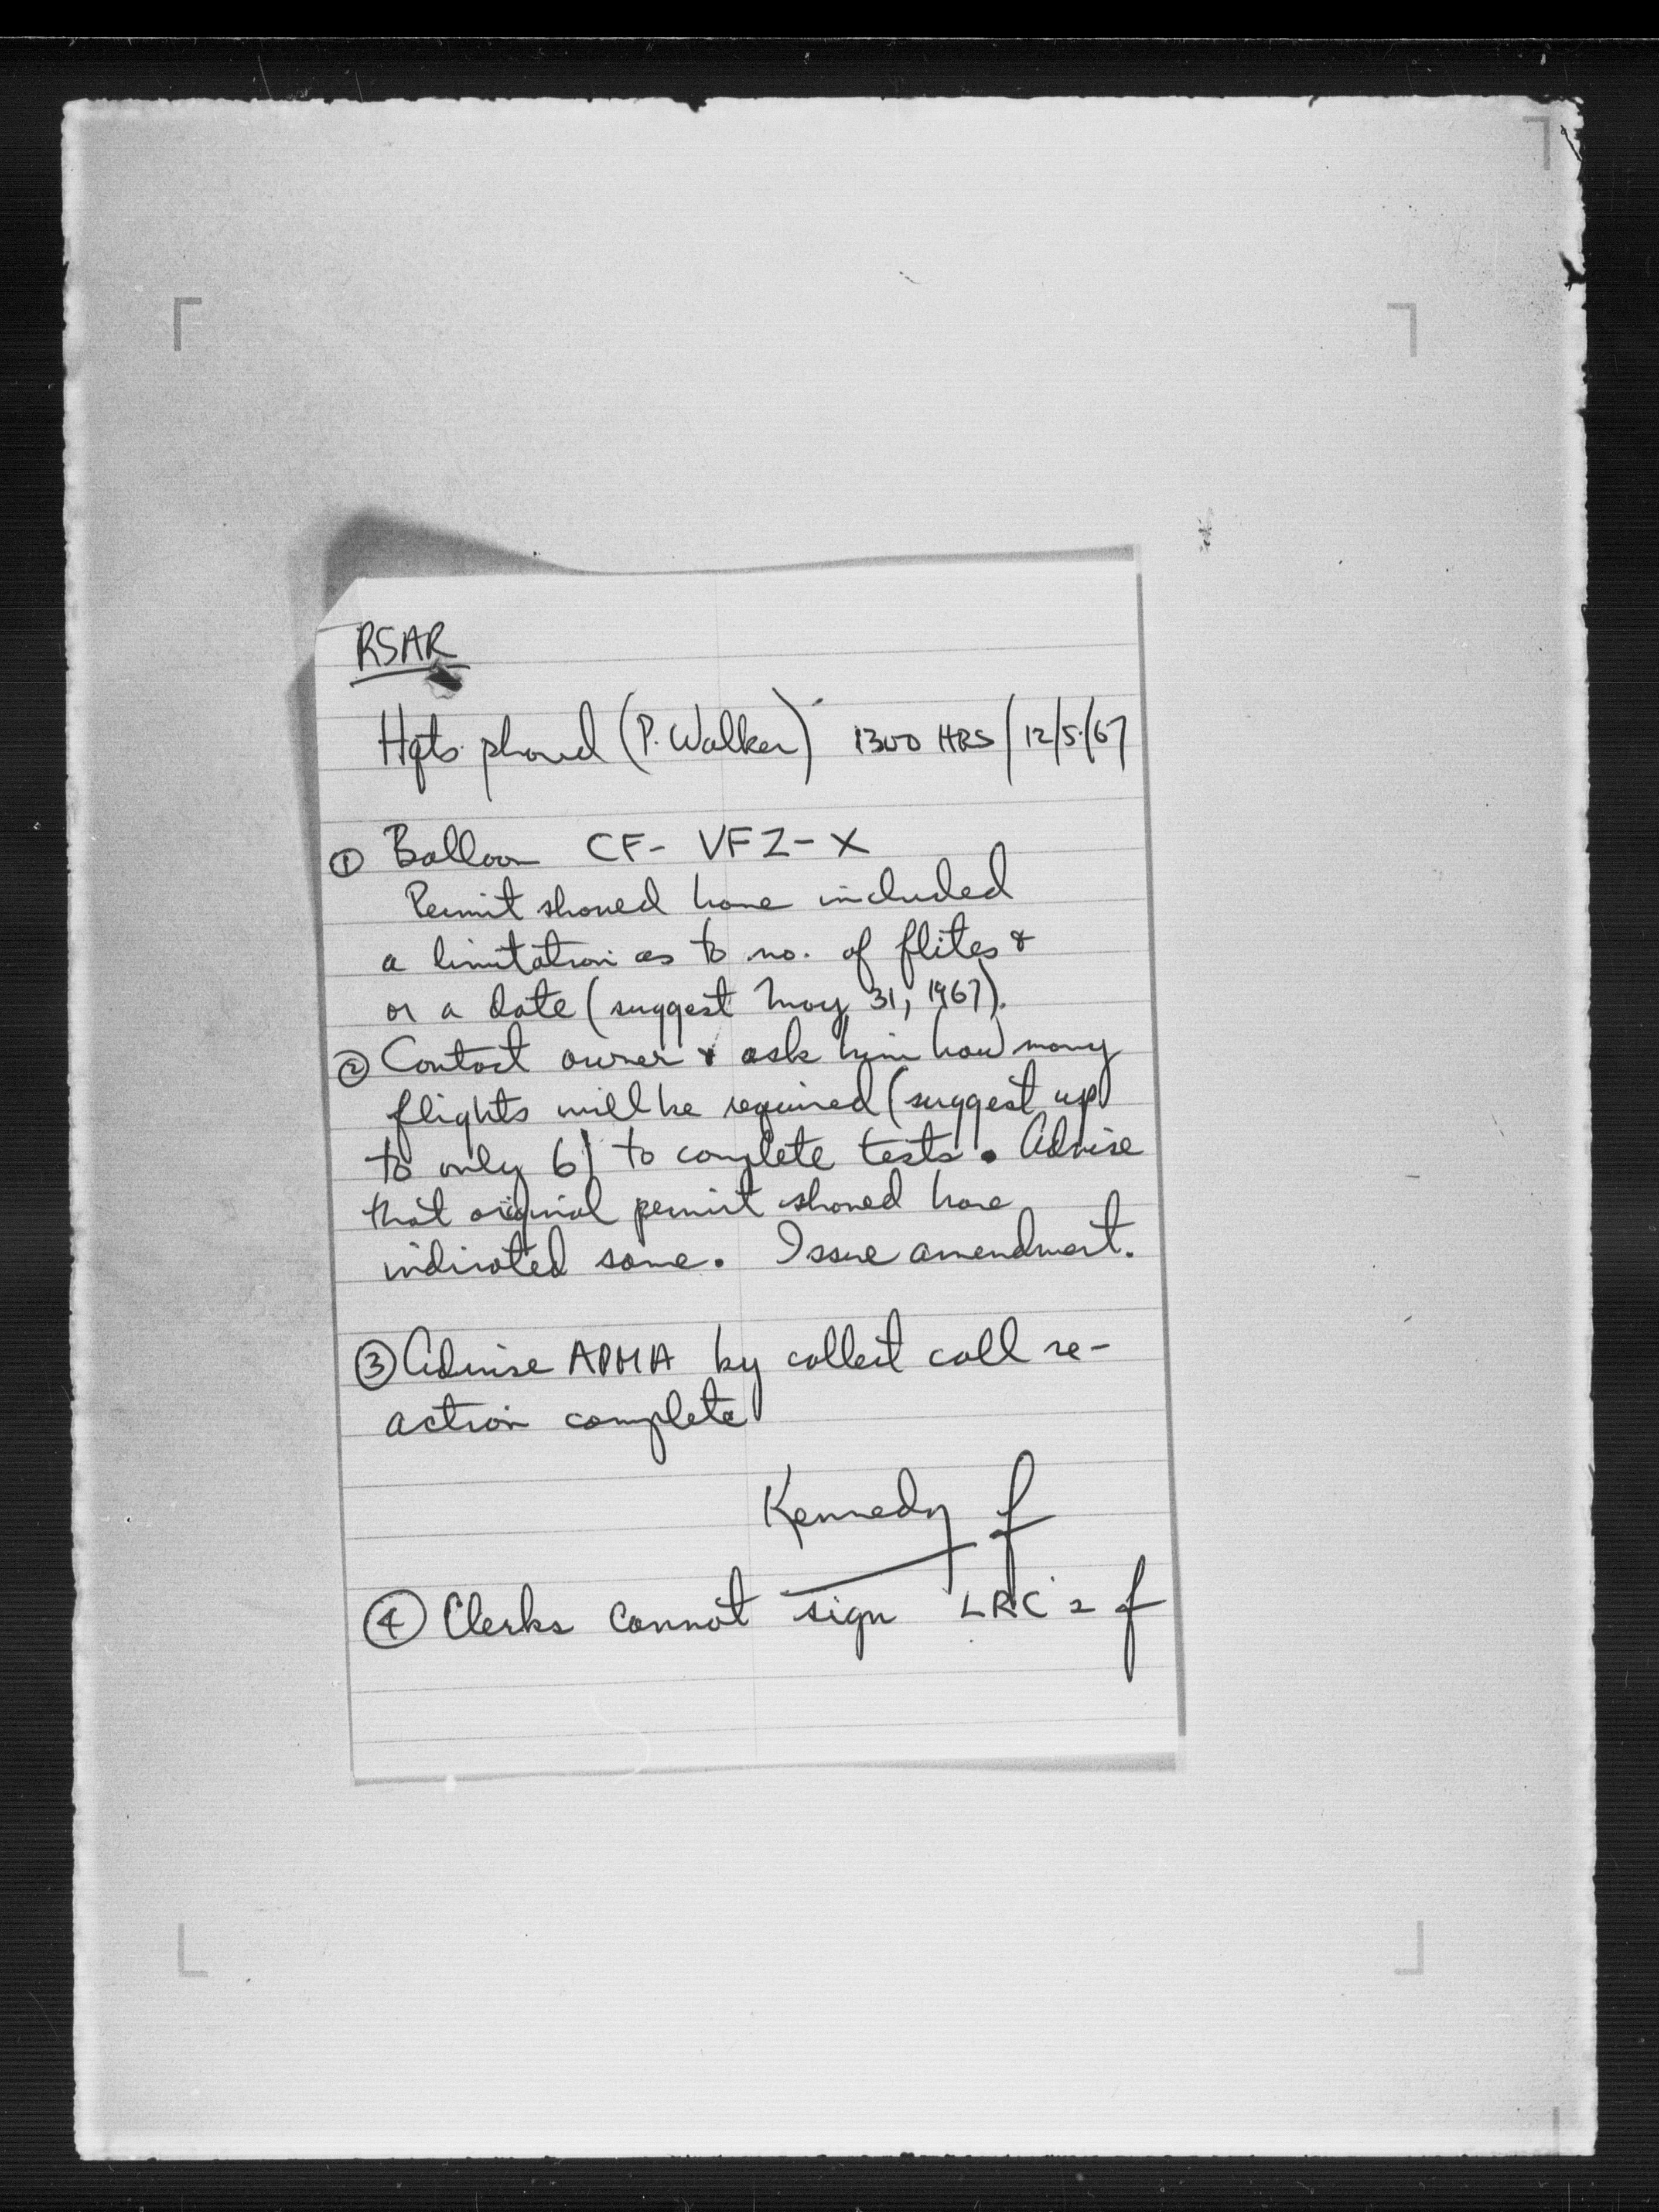 RSAR
Hqts phoned (P. Walker) 1300 HRS/12/5/67
① Balloon CF- VFZ-X
Permit should have included
a limitation as to no. of flites &
or a date (suggest May 31, 1967).
② Contact owner & ask him how many
flights will be required (suggest up
to only 6) to complete tests. Advise
that original permit should have
indicated same. Issue amendment.
③ Advise APMA by collect call re-
action complete
Kennedy
④ Clerks cannot sign LRC's